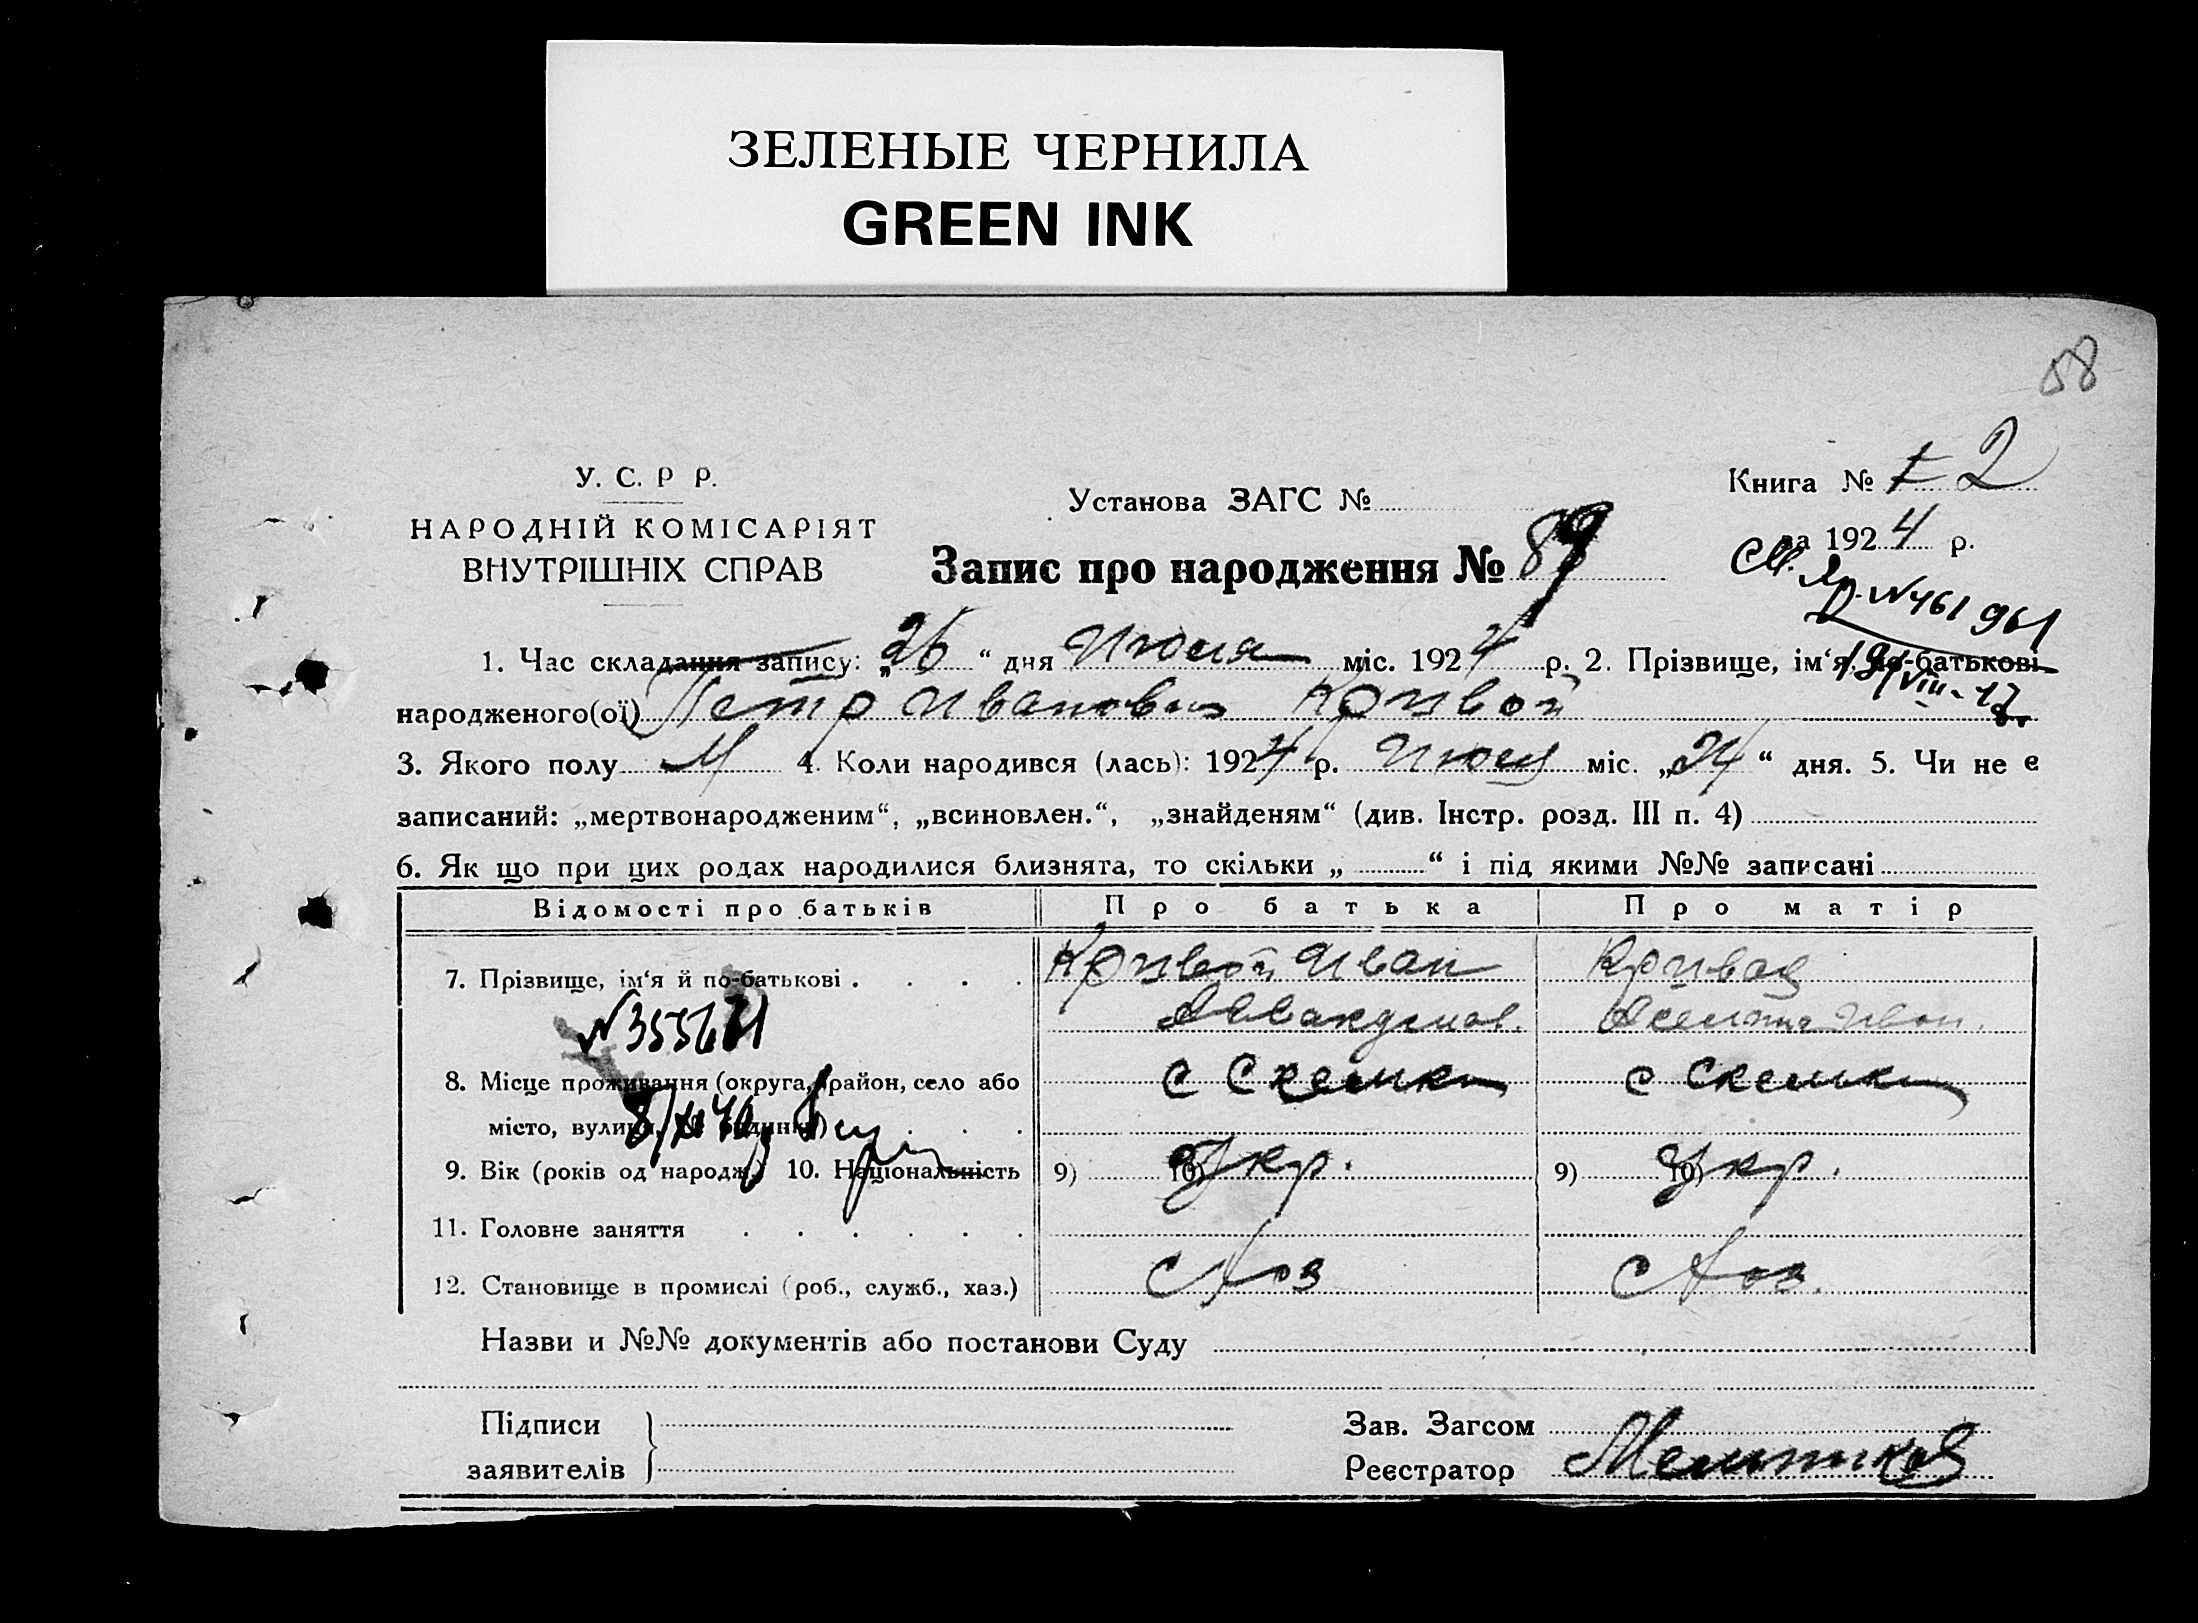 ЗЕЛЕНЫЕ ЧЕРНИЛА
GREEN INK
58
У. С. Р Р.
НАРОДНІЙ КОМІСАРІЯТ
ВНУТРІШНІХ СПРАВ
Установа ЗАГС №
Запис про народження № 89
Книга № 1 2
за 1924 р.
№ 461961
1. Час складання запису: „26“ дня Июля міс. 1924 р. 2. Прізвище, ім‘я, по-батькові
народженого(ої) Петр Иванович Кривой
3. Якого полу М 4. Коли народився (лась): 1924 р. Июля міс. „24“ дня. 5. Чи не є
записаний: „мертвонародженим“, „всиновлен.“, „знайденям“ (див. Інстр. розд. III п. 4)
6. Як що при цих родах народилися близнята, то скільки „ “ і під якими №№ записані
Відомості про батьків Про батька Про матір
7. Прізвище, ім‘я й по-батькові Кривой Иван Кривая
№ 355621 Иван.
8. Місце проживання (округа, район, село або с Скельки с Скельки
місто, вулиця, № будинку)
9. Вік (років од народж.) 10. Національність 9) 10) Укр. 9) 10) Укр.
11. Головне заняття
12. Становище в промислі (роб., служб., хаз.) с хоз с хоз.
Назви и №№ документів або постанови Суду
Підписи
заявителів
Зав. Загсом
Реєстратор Мельников